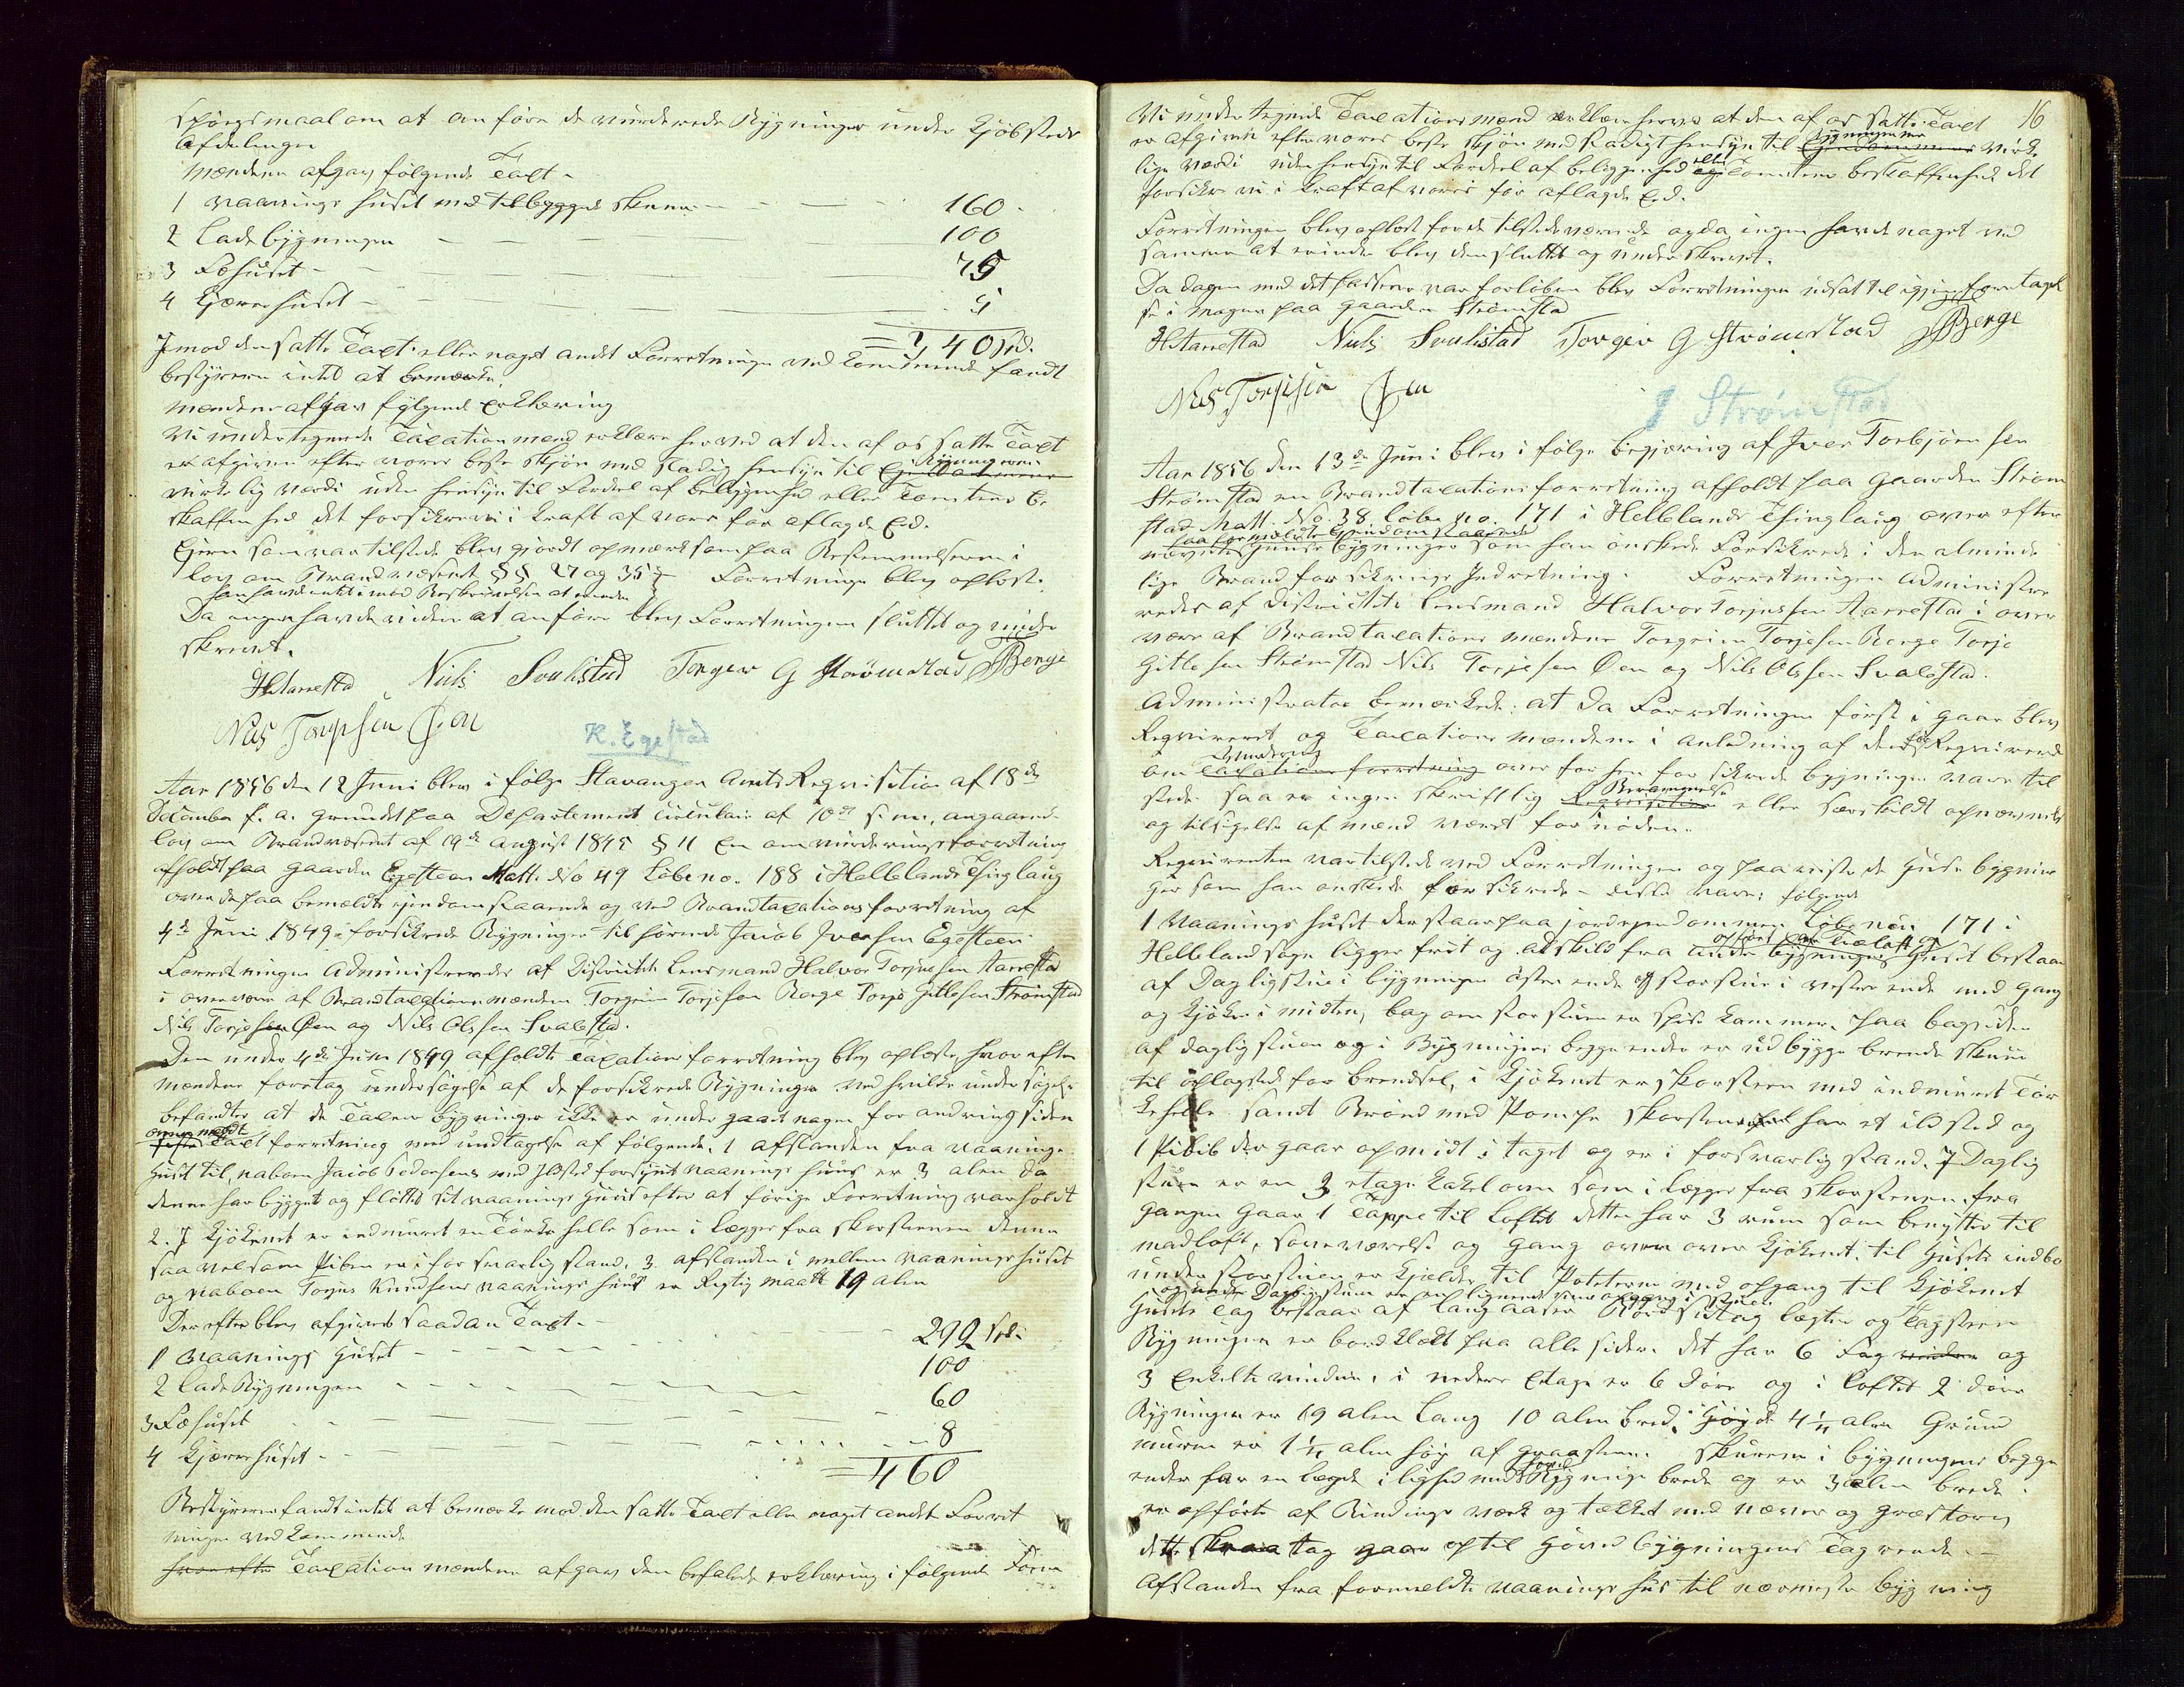 Spørgsmaal om at anføre de vurderede Bygninger under Kjøbsteds
Afdelingen
Mændene afgav følgende Taxt –
1 Vaanings huset med tilbygget Skuur – 160 –
2 Ladebygningen – 100
3 Fæhuset – 75
4 Kjærnehuset – 5
= 340 Spd.
Imod den satte Taxt eller noget andet Forretningen ved kommende fandt
bestyreren intet at bemærke.
Mændene afgav følgende Erklæring
Vi undertegnede Taxationsmænd erklære herved at den af os satte Taxt
er afgiven efter vores beste skjøn med stadig hensyn til Bygningernes
virkelig værdi uden hensyn til Fordeel af beliggenhed eller Tomtens be
skaffenhed det forsikre vi i kraft af vores før aflagde Eed.
Ejeren som var tilstede blev gjordt opmærksom paa Bestemmelserne i
lov om Brandvæsenet §§ 27 og 35 – Forretningen blev oplæst.
han havde intet imod Beskrivelsen at erindre
Da ingen havde videre at anføre blev Forretningen sluttet og under
skrevet.
HAarrestad Niels Svalestad Torger G Strømstad TBerge
Nils Torjesen Øen
K. Egestad
Aar 1856 den 12 Juni blev i følge Stavanger Amts Reqvisition af 18de
December f. a. grundet paa Departement Circulair af 10de s. m. angaaende
lov om Brandvæsenet af 19de August 1845 § 11 En omvurderingsforretning
afholdt paa gaarden Egesteen Matt. No 49 Løbe no. 188 i Hellelands Thinglaug
over de paa bemældte ejendom staaende og ved Brandtaxationsforretning af
4de Juni 1849 forsikrede Bygninger tilhørende Jacob Iversen Egesteen
Forretningen Administreredes af Districtets Lensmand Halvor Torjusen Aarrestad
i overvære af Brandtaxationsmændene Torgrim Torjesen Berge Torje Gitlesen Strømstad
Nils Torjesen Øen og Nils Olsen Svalestad.
Den under 4de Juni 1849 afholdte Taxationsforretning blev oplæst, hvorefter
Mændene foretog undersøgelse af de forsikrede Bygninger ved hvilke undersøgelse
befandtes at de Taxerede bygninger ikke er under gaaet nogen forandring siden
ovenmeldte Taxtforretning med undtagelse af følgende. 1 Afstanden fra Vaanings
huset til naboen Jacob Pedersens med Ildsted forsynet vaanings huus er 3 alen da
denne har bygget og fløttet sit vaanings huus efter at forige Forretning var holdt
2. I Kjøkenet er indmuret en Tørke helle som i lægger fra skorstenen denne
saavelsom Piben er i forsvarlig stand. 3. afstanden i mellem vaaningshuset
og naboen Torjus Knudsens vaanings huus er Rigtig maalt 19 alen
Der efter blev afgivet saadan Taxt –
1 Vaanings huset – 292 Spd.
2 Lade Bygningen – 100
3 Fæhuset – 60
4 Kjærnehuset – 8
= 460
Bestyreren fandt intet at bemærke mod den satte Taxt eller noget andet Forret
ningen ved kommende
hvor efter Taxationsmændene afgav den befalede erklæring i følgende Form
16
Vi undertegnede Taxationsmænd erklære herved at den af os satte Taxt
er afgiven efter vores beste skjøn med stadigt hensyn til Bygningernes virke
lige værdi uden hensyn til Fordeel af beliggenhed eller Tomtens beskaffenhed det
forsikre vi i kraft af vores før aflagde Eed.
Forretningen blev oplæst for de tilstedeværende og da ingen havde noget ved
samme at erindre blev den sluttet og underskrevet.
Da dagen med det passerede var forløben blev Forretningen udsat til igjen foretagel
se i morgen paa gaarden Strømstad
HAarrestad Niels Svalestad Torger G Strømstad TBerge
Nils Torjesen Øen
J Strømstad
Aar 1856 den 13de Juni blev i følge begjæring af Iver Torbjørnsen
Strømstad en Brandtaxationsforretning afholdt paa gaarden Strøm
stad Matt. No. 38 løbe no. 171 i Hellelands Thinglaug over efter
paa formældte Ejendom staaende
nævnte huuse bygninger som han ønskede Forsikrede i den alminde
lige Brandforsikrings Indretning. Forretningen Administre
redes af Districtets Lensmand Halvor Torjusen Aarrestad i over
være af Brandtaxationsmændene Torgrim Torjesen Berge Torje
Gitlesen Strømstad Nils Torjesen Øen og Nils Olsen Svalestad.
Administrator bemærkede: at da Forretningen først i gaar blev
Reqvireret og Taxationsmændene i anledning af den Reqvirerede
om vurdering over for hen forsikrede bygninger vare til
stede saa er ingen skriftlig Berammelse eller særskildt opnævnelse
og tilsigelse af mænd været fornøden.
Reqvirenten var tilstede ved Forretningen og paaviste de huuse bygnin
ger som han ønskede forsikrede – disse vare følgende
1 Vaanings huset der staar paa jordejendommen Løbe no. 171 i
Helleland sogn ligger frit og adskild fra andre bygninger opført af Tælaft og huset bestaar
af Dagligstue i bygningens østre ende og storstue i vestre ende med gang
og kjøken i midten, bag om storstuen er spise kammer. paa bagsiden
af dagligstuen og i Bygningens begge ender er udbygge brænde skuur
til oplagsted for brendsel, i kjøkenet er skorsteen med indmuret Tør
kehelle samt Brønd med Pompe skorstenen har et ildsted og
1 Pibe der gaar op midt i taget og er i forsvarlig stand. I Daglig
stuen er en 3 etages kakelovn som i lægger fra skorstenen. fra
gangen gaar 1 Trappe til loftet dette har 3 rum som benyttes til
madloft, soveværelse og gang oven over kjøkenet. til husets indbo
under storstuen er kjelder til Poteterne med opgang til kjøkenet
og under Dagligstuen er en lignende med opgang i stuen
Husets Tag bestaar af langaaser Bord sutag lægter og Tagsteen
Bygningen er bordklædt paa alle sider. det har 6 Fag og
3 Enkelte vinduer, i nedere Etage er 6 døre og i loftet 2 døre
Bygningen er 19 alen lang 10 alen bred, høyde 4 1/4 alen Grund
muren er 1 1/4 alen høy af graasteen. skurene i bygningens begge
ender har en længde i lighed med hovedbygnings brede og er 3 alen brede.
er opført af Bindings værk og tækket med næver og græstorv
dette skraatag gaar op til hovedbygningens Tagrende. –
Afstanden fra formeldte vaanings hus til nærmeste bygning